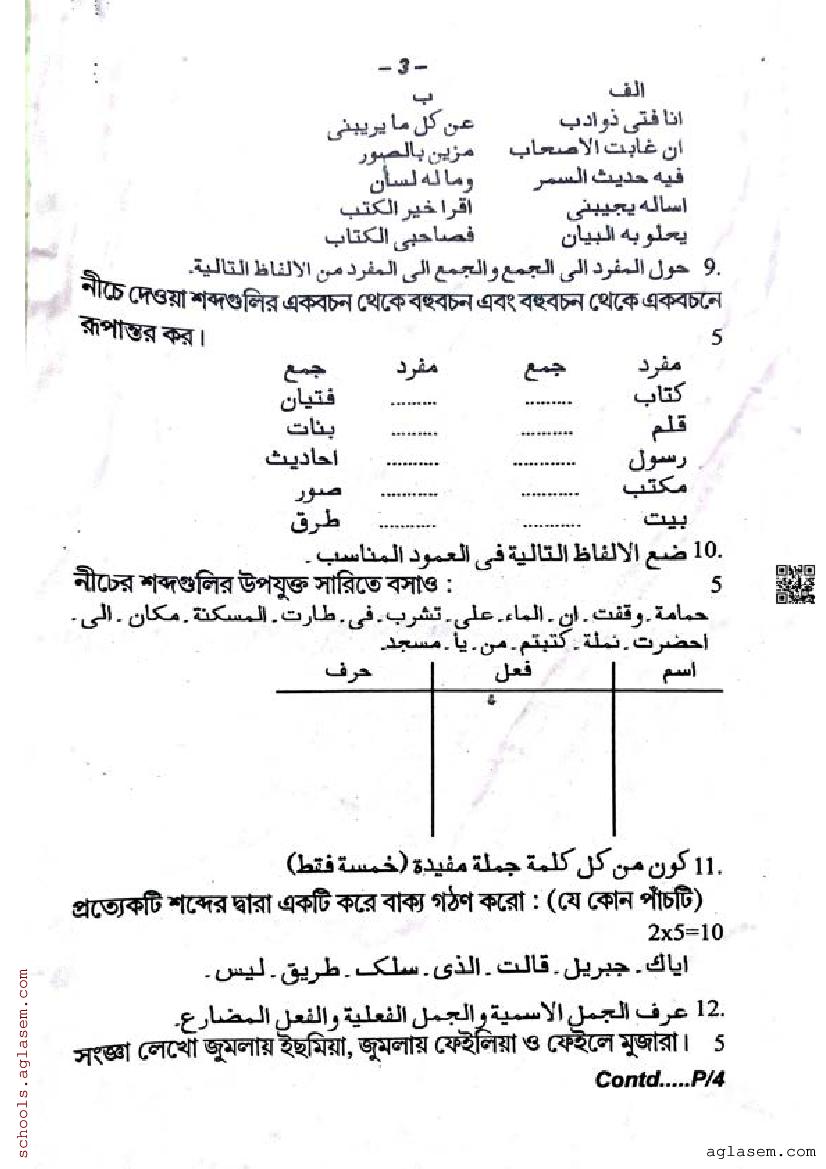 – 3 –
الف ب
انا فتى ذو ادب عن كل ما يريبنى
ان غابت الاصحاب مزين بالصور
فيه حديث السمر وما له لسان
اساله يجيبنى اقرا خير الكتب
يحلو به البيان فصاحبى الكتاب
9. حول المفرد الى الجمع والجمع الى المفرد من الالفاظ التالية.
নীচে দেওয়া শব্দগুলির একবচন থেকে বহুবচন এবং বহুবচন থেকে একবচনে
রূপান্তর কর। 5
مفرد جمع مفرد جمع
كتاب ......... ......... فتيان
قلم .......... ......... بنات
رسول ............ .......... احاديث
مكتب ........... ........... صور
بيت ........... .......... طرق
10. ضع الالفاظ التالية فى العمود المناسب.
নীচের শব্দগুলির উপযুক্ত সারিতে বসাও : 5
حمامة. وقفت. ان. الماء. على. تشرب. فى. طارت. المسكنة. مكان. الى.
احضرت. نملة. كتبتم. من. يا. مسجد.
اسم فعل حرف
11. كون من كل كلمة جملة مفيدة (خمسة فقط)
প্রত্যেকটি শব্দের দ্বারা একটি করে বাক্য গঠণ করো : (যে কোন পাঁচটি)
2x5=10
اياك. جبريل. قالت. الذى. سلک. طريق. ليس.
12. عرف الجمل الاسمية والجمل الفعلية والفعل المضارع.
সংজ্ঞা লেখো জুমলায় ইছমিয়া, জুমলায় ফেইলিয়া ও ফেইলে মুজারা। 5
Contd.....P/4
schools.aglasem.com
aglasem.com